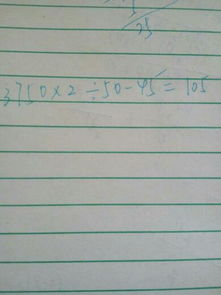 25
3750×2÷50-45=105